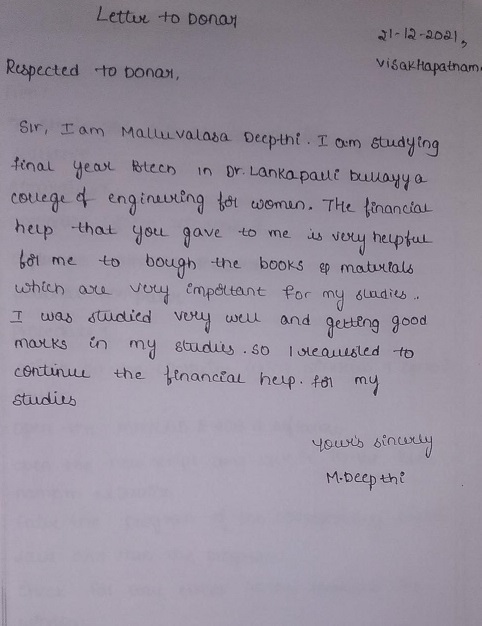 Letter to Donar
21-12-2021,
Visakhapatnam.
Respected to Donar,
Sir, I am Malluvalasa Deepthi. I am studying
final year Btech in Dr. Lankapalli bullayya
college of engineering for women. The financial
help that you gave to me is very helpful
for me to bough the books & materials
which are very important for my studies..
I was studied very well and getting good
marks in my studies. so I requested to
continue the financial help. for my
studies
your's sincerly
M.Deepthi